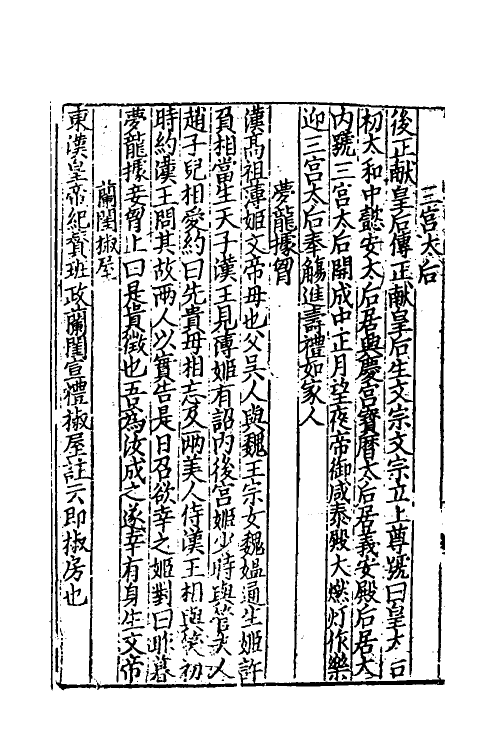 三宮太后
後正献皇后傳正献皇后生文宗文宗立上尊號曰皇太后
初太和中懿安太后居興慶宮寶曆太后居義安殿后居大
内號三宮太后開成中正月望夜帝御咸泰殿大燃灯作樂
迎三宮太后奉觴進壽禮如家人
夢龍據胷
漢髙祖薄姬文帝母也父吳人與魏王宗女魏媪通生姬許
負相當生天子漢王見薄姬有詔内後宮姬少時與管夫人
趙子兒相愛約曰先貴毋相忘及兩美人侍漢王相與笑初
時約漢王問其故兩人以實告是日召欲幸之姬對曰昨暮
夢龍據妾胷上曰是貴徴也吾為汝成之遂幸有身生文帝
蘭閨椒屋
東漢皇帝紀賛班政蘭閨宣禮椒屋註云即椒房也